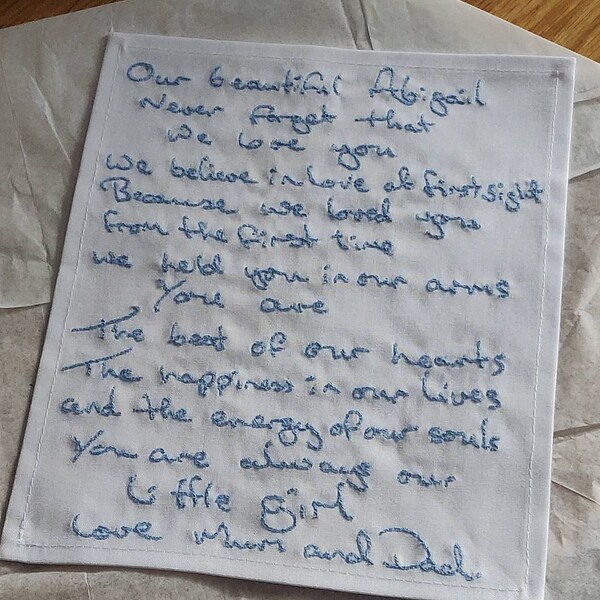 Our beautiful Abigail
Never forget that
We love you
We believe in love at first sight
Because we loved you
from the first time
we held you in our arms
You are
The beat of our hearts
The happiness in our lives
and the energy of our souls
You are always our
little girl
Love Mum and Dad.